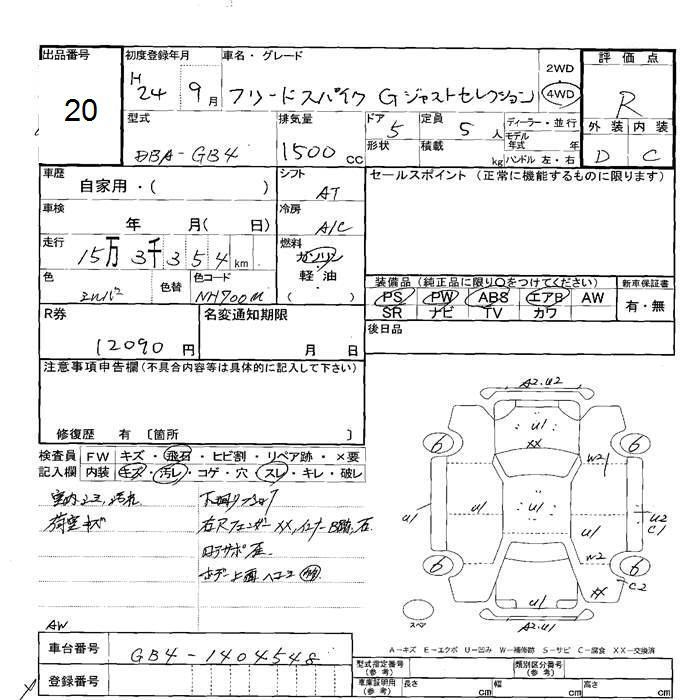 出品番号
20
初度登録年月
H 24 9月
車名・グレード
フリードスパイク Gジャストセレクション
2WD
4WD
評価点
R
外装 内装
D C
型式
DBA-GB4
排気量
1500 cc
ドア 5
形状
定員 5 人
積載 kg
ディーラー・並行
モデル
年式 年
ハンドル 左・右
車歴
自家用・( )
シフト
AT
セールスポイント (正常に機能するものに限ります)
車検
年 月( 日)
冷房
A/C
走行
15万3千354km
燃料
ガソリン
軽油
( )
色
シルバー
色替
色コード
NH700M
装備品 (純正品に限り○をつけてください)
PS PW ABS エアB AW
SR ナビ TV カワ
新車保証書
有・無
R券
12090 円
名変通知期限
月 日
後日品
注意事項申告欄(不具合内容等は具体的に記入して下さい)
修復歴 有 〔箇所 〕
検査員
記入欄
FW キズ・飛石・ヒビ割・リペア跡・×要
内装 キズ・汚レ・コゲ・穴・スレ・キレ・破レ
室内シミ、汚れ
荷室キズ
下廻りサビ
右Rフェンダー XX,インナーB跡,
ボデー上面ヘコミ
AW
A2.U2
U1
XX
6
6
W2
U1
U1
U1
U2
C1
W2
6
6
XX
C2
U1
A2.U1
スペア
A-キズ E-エクボ U-凹み W-補修跡 S-サビ C-腐食 XX-交換済
車台番号
GB4-1404548
登録番号
型式指定番号
(参考)
類別区分番号
(参考)
車庫証明用
(参考)
長さ cm
幅 cm
高さ cm